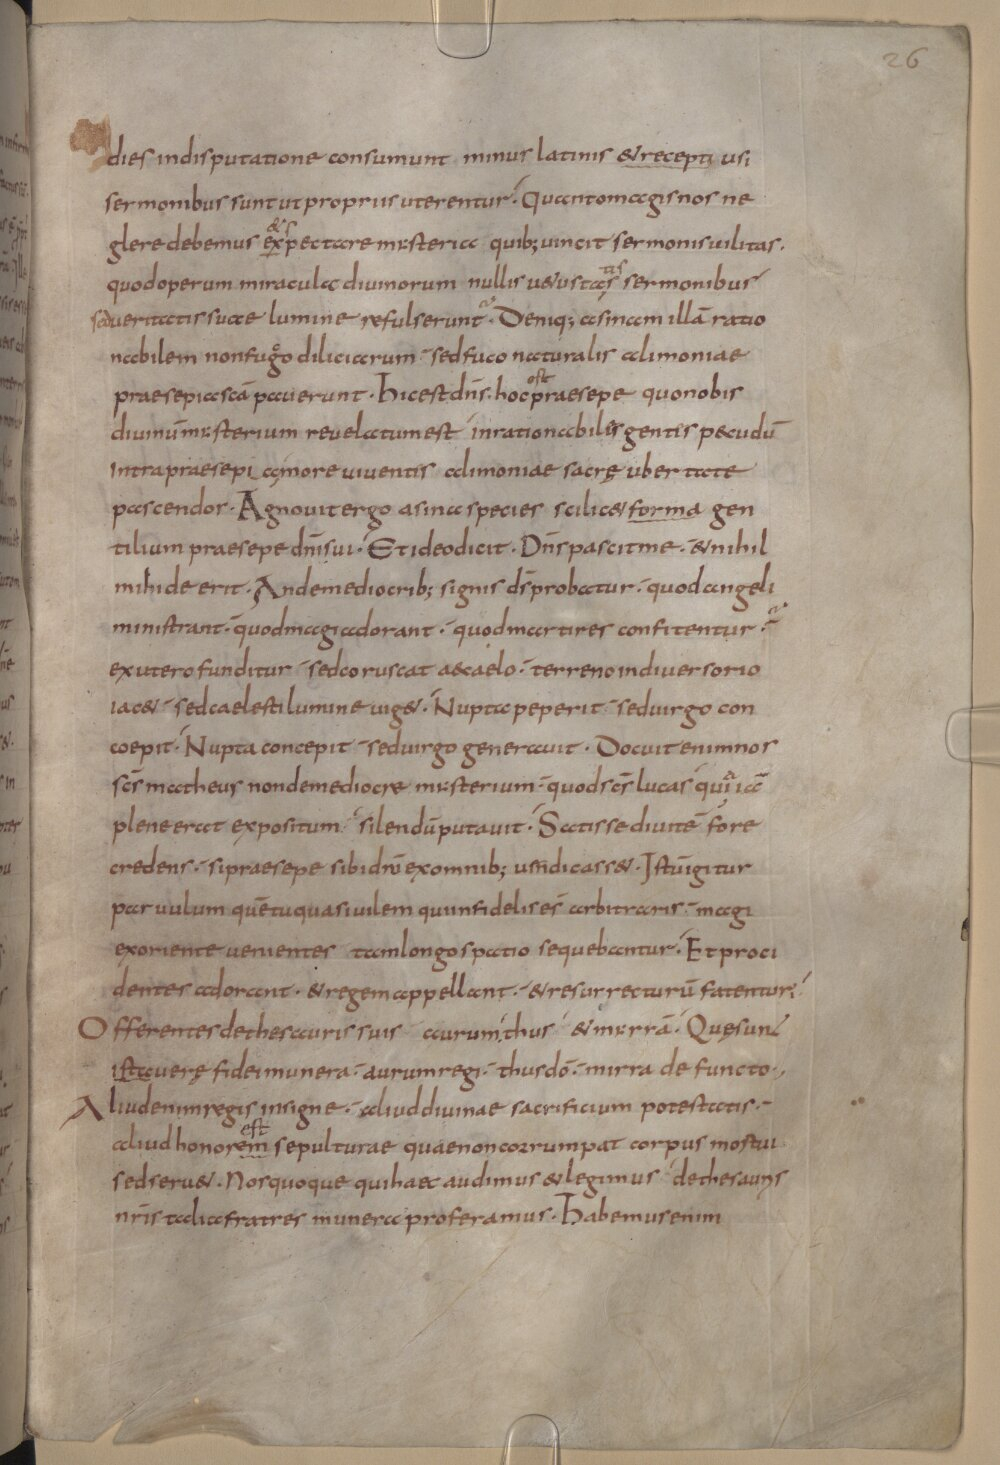 26
dies indisputatione consumunt minus latinis & recepti usi
sermonibus sunt ut propriis uterentur. Quantomagisnos ne
glere debemus expectare mysteria quib; uincit sermonisuilitas.
quodoperum miracula diuinorum nullis u&ustas sermonibus
sed ueritatis suae lumine refulserunt. Deniq; asinam illā ratio
nabilem nonfugo diliciarum sedfuco naturalis alimoniae
praesepia scā pauerunt. Hicest dn̄s. hoc est praesepe quonobis
diuinū mysterium reuelatumest inrationabiles gentis pecudū
intrapraesepi amore uiuentis alimoniae sacrę ubertate
pascendos. Agnouit ergo asina species scilic& forma gen
tilium praesepe dn̄i sui. Et ideodicit. Dn̄s pascit me. & nihil
mihi de erit. Andemediocrib; signis ds̄ probatur. quod angeli
ministrant. quod magi adorant. quod martires confitentur.
exuterofunditur sed coruscat aecaelo. terreno indiuersorio
iac& sed caelesti lumine uig&. Nupta peperit sed uirgo con
coepit. Nupta concepit sed uirgo generauit. Docuit enim nos
scs̄ matheus nondemediocre mysterium quod scs̄ lucas quia iā
plene erat expositum silendū putauit. Satis se diuitē fore
credens. si praesepe sibi dn̄i exomnib; uendicass&. Istū igitur
paruulum quē tu quasi uilem qui infidelis és arbitraris. magi
exoriente uenientes tamlongo spatio sequebantur. Et proci
dentes adorant. & regem appellant. & resurrecturū fatentur.
Offerentes de thesauris suis aurum thus & myrrā. Quę sunt
ista uerę fidei munera. aurum regi. thus dō. mirra defuncto.
Aliud enim regis insigne. aliud diuinae sacrificium potestatis.
aliud honorem est sepulturae quae non corrumpat corpus mostui
sed seru&. Nos quoque qui haec audimus & legimus de thesauris
nr̄is talia fratres munera proferamus. Habemus enim